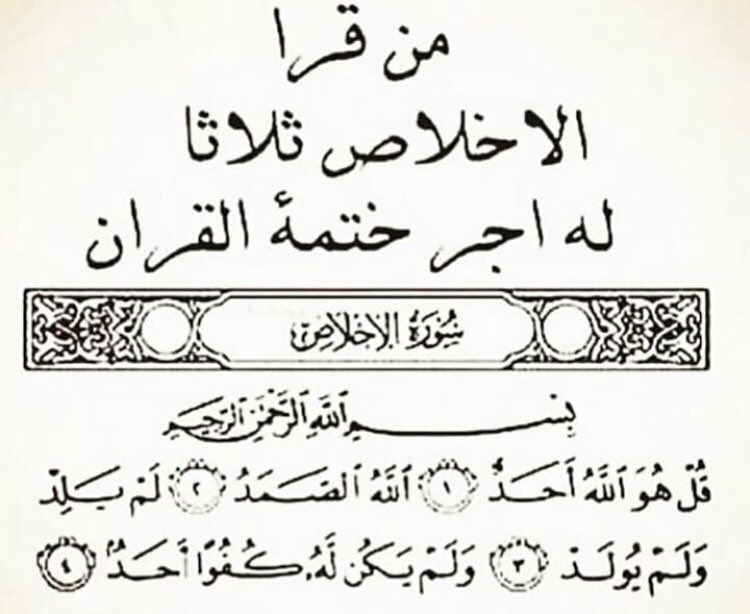 من قرا
الاخلاص ثلاثا
له اجر ختمة القران
سُورَةُ الإِخْلَاصِ
بِسْمِ ٱللَّهِ ٱلرَّحْمَٰنِ ٱلرَّحِيمِ
قُلْ هُوَ ٱللَّهُ أَحَدٌ ١ ٱللَّهُ ٱلصَّمَدُ ٢ لَمْ يَلِدْ
وَلَمْ يُولَدْ ٣ وَلَمْ يَكُن لَّهُۥ كُفُوًا أَحَدٌۢ ٤